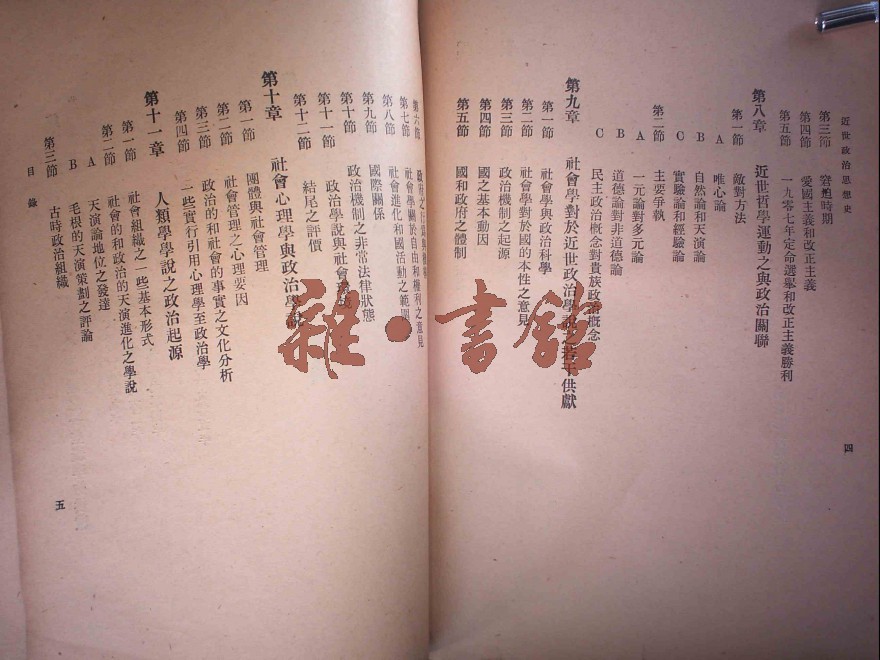 近世政治思想史
四
第三節 窘迫時期
第四節 愛國主義和改正主義
第五節 一九零七年定命選擧和改正主義勝利
第八章 近世哲學運動之與政治關聯
第一節 敵對方法
A 唯心論
B 自然論和天演論
C 實驗論和經驗論
第二節 主要爭執
A 一元論對多元論
B 道德論對非道德論
C 民主政治概念對貴族政治概念
第九章 社會學對於近世政治學說之若干供獻
第一節 社會學與政治科學
第二節 社會學對於國的本性之意見
第三節 政治機制之起源
第四節 國之基本動因
第五節 國和政府之體制
第六節
第七節 社會學關於自由和權利之意見
第八節 社會進化和國活動之範圍
第九節 國際關係
第十節 政治機制之非常法律狀態
第十一節 政治學說與社會
第十二節 結尾之評價
第十章 社會心理學與政治學說
第一節 團體與社會管理
第二節 社會管理之心理要因
第三節 政治的和社會的事實之文化分析
第四節 一些實行引用心理學至政治學
第十一章 人類學學說之政治起源
第一節 社會組織之一些基本形式
第二節 社會的和政治的天演進化之學說
A 天演論地位之發達
B 毛根的天演策劃之評論
第三節 古時政治組織
目錄
五
雜·書館